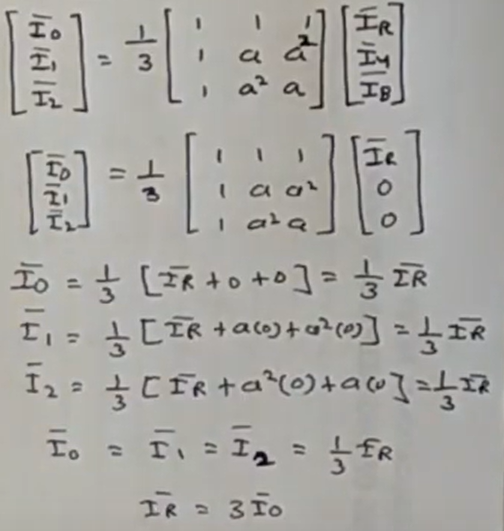 [I̅0 I̅1 I̅2] = 1/3 [1 1 1; 1 a a²; 1 a² a] [I̅R I̅Y I̅B]
[I̅0 I̅1 I̅2] = 1/3 [1 1 1; 1 a a²; 1 a² a] [I̅R 0 0]
I̅0 = 1/3 [I̅R + 0 + 0] = 1/3 I̅R
I̅1 = 1/3 [I̅R + a(0) + a²(0)] = 1/3 I̅R
I̅2 = 1/3 [I̅R + a²(0) + a(0] = 1/3 I̅R
I̅0 = I̅1 = I̅2 = 1/3 I̅R
I̅R = 3 I̅0